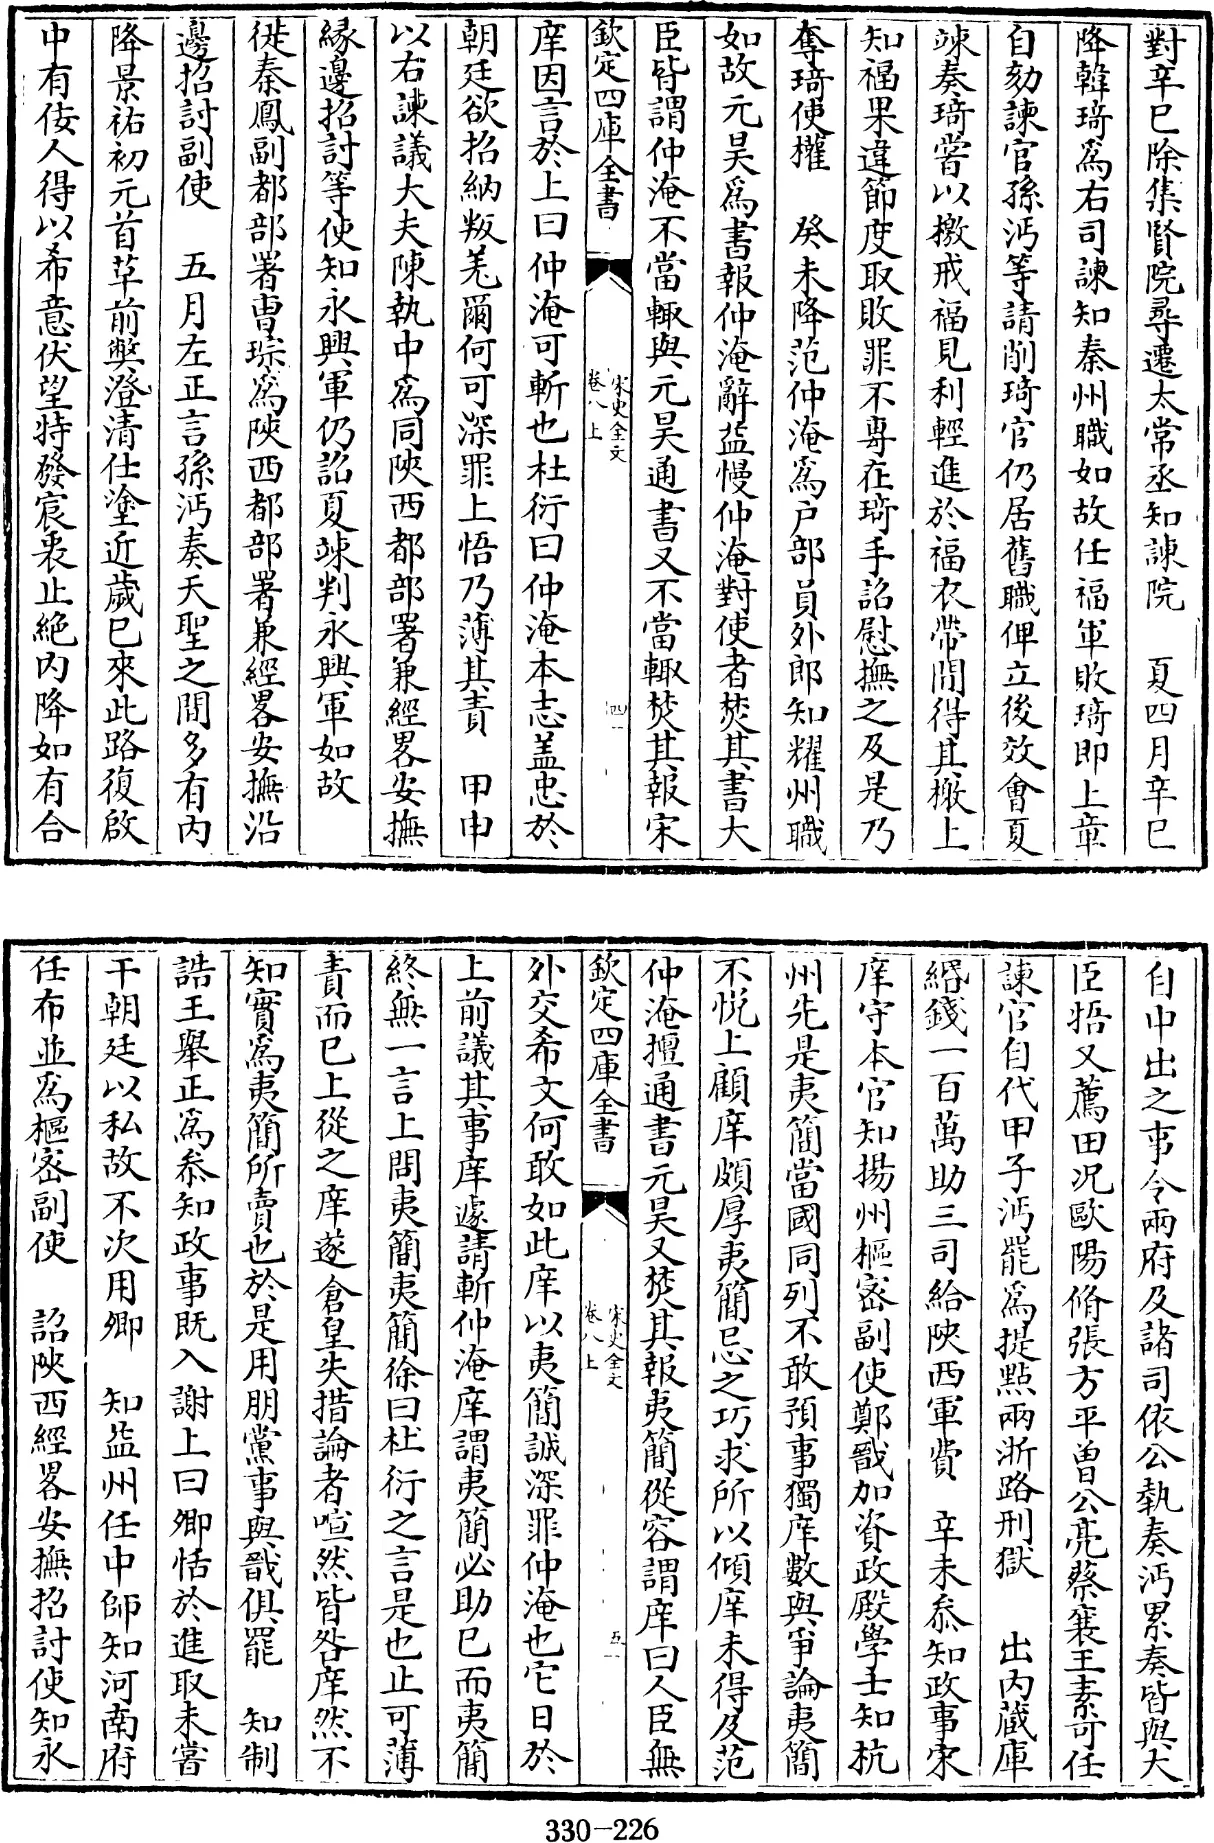 對辛巳除集賢院尋遷太常丞知諫院　夏四月辛巳
降韓琦爲右司諫知秦州職如故任福軍敗琦即上章
自劾諫官孫沔等請削琦官仍居舊職俾立後效會夏
竦奏琦嘗以檄戒福見利輕進於福衣帶間得其檄上
知福果違節度取敗罪不專在琦手詔慰撫之及是乃
奪琦使權　癸未降范仲淹爲户部員外郎知耀州職
如故元昊爲書報仲淹辭益慢仲淹對使者焚其書大
臣皆謂仲淹不當輙與元昊通書又不當輙焚其報宋
欽定四庫全書　宋史全文卷八上　四
庠因言於上曰仲淹可斬也杜衍曰仲淹本志盖忠於
朝廷欲招納叛羌爾何可深罪上悟乃薄其責　甲申
以右諫議大夫陳執中爲同陝西都部署兼經畧安撫
緣邊招討等使知永興軍仍詔夏竦判永興軍如故
徙秦鳳副都部署曹琮爲陝西都部署兼經畧安撫沿
邊招討副使　五月左正言孫沔奏天聖之間多有内
降景祐初元首革前弊澄清仕塗近歲已來此路復啟
中有佞人得以希意伏望特發宸衷止絶内降如有合
自中出之事令兩府及諸司依公執奏沔累奏皆與大
臣牾又薦田况歐陽脩張方平曽公亮蔡襄王素可任
諫官自代甲子沔罷爲提點兩浙路刑獄　出内藏庫
緡錢一百萬助三司給陝西軍費　辛未叅知政事宋
庠守本官知揚州樞密副使鄭戩加資政殿學士知杭
州先是夷簡當國同列不敢預事獨庠數與爭論夷簡
不悦上顧庠頗厚夷簡忌之巧求所以傾庠未得及范
仲淹擅通書元昊又焚其報夷簡從容謂庠曰人臣無
欽定四庫全書　宋史全文卷八上　五
外交希文何敢如此庠以夷簡誠深罪仲淹也它日於
上前議其事庠遽請斬仲淹庠謂夷簡必助已而夷簡
終無一言上問夷簡夷簡徐曰杜衍之言是也止可薄
責而已上從之庠遂倉皇失措論者喧然皆咎庠然不
知實爲夷簡所賣也於是用朋黨事與戩俱罷　知制
誥王舉正爲叅知政事既入謝上曰卿恬於進取未嘗
干朝廷以私故不次用卿　知益州任中師知河南府
任布並爲樞密副使　詔陝西經畧安撫招討使知永
330-226